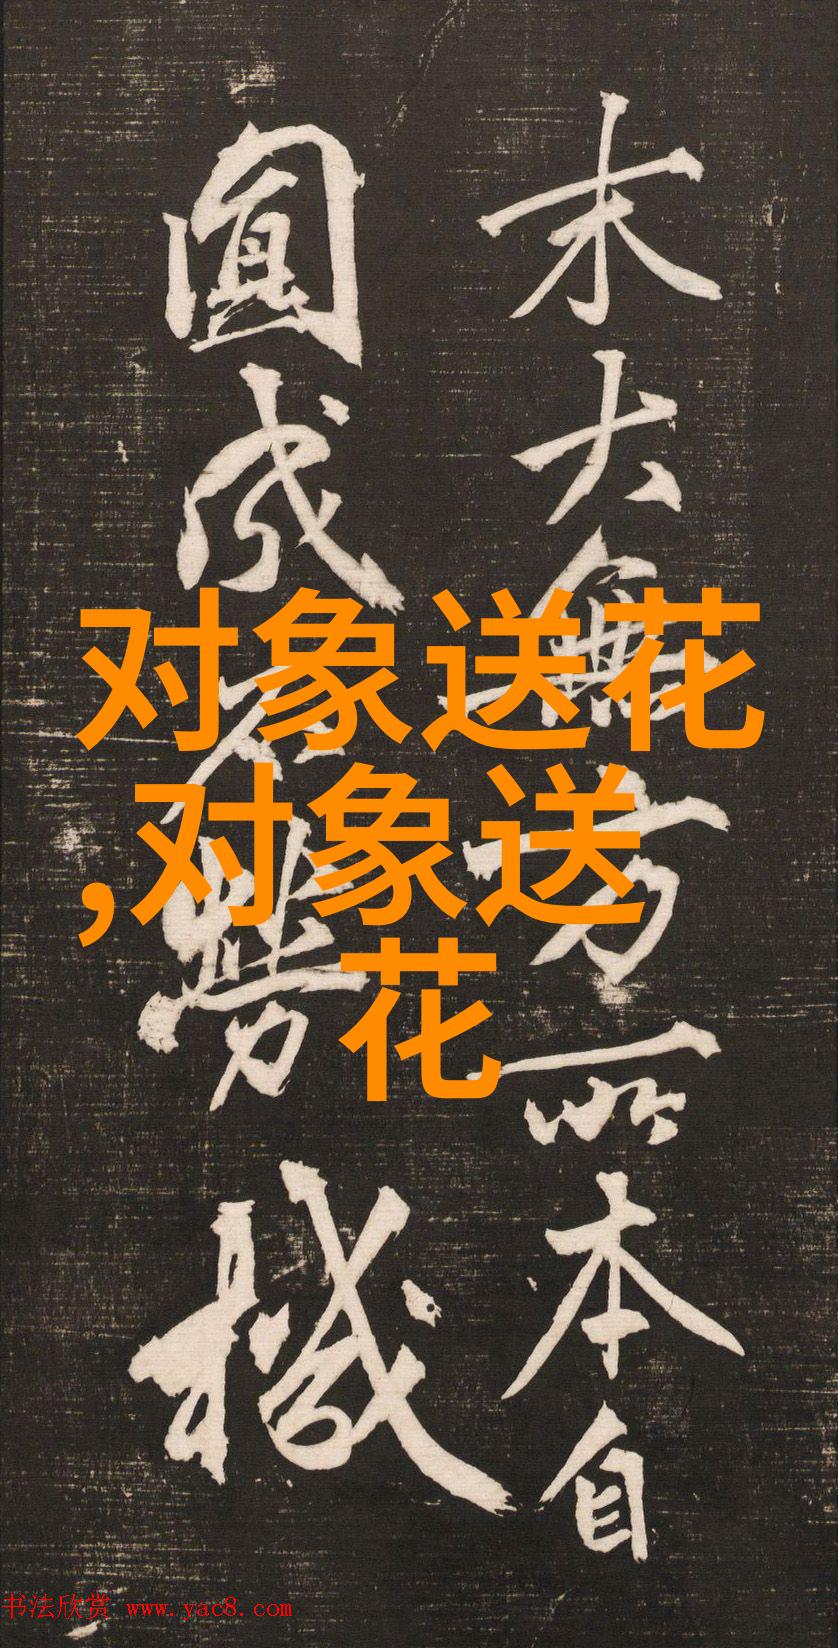 末大無方所本自
圓成不勞機
对象送花
,对象送
花
书法欣赏 www.yac8.com